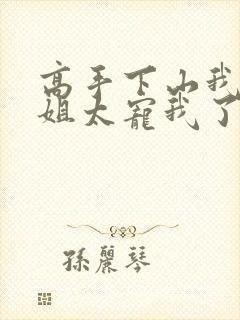 高手下山我
姐太寵我了
孫麗琴